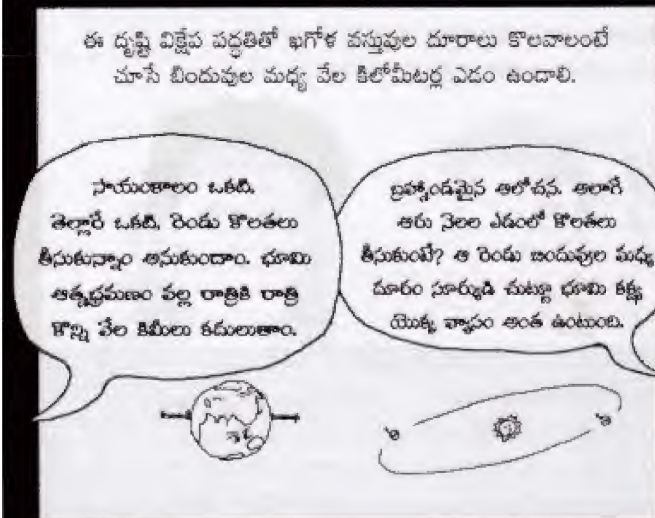 ఈ దృష్టి విక్షేప పద్ధతితో ఖగోళ వస్తువుల దూరాలు కొలవాలంటే
చూసే బిందువుల మధ్య వేల కిలోమీటర్ల ఎడం ఉండాలి.
సాయంకాలం ఒకటి,
తెల్లారే ఒకటి, రెండు కొలతలు
తీసుకున్నాం అనుకుందాం. భూమి
ఆత్మభ్రమణం వల్ల రాత్రికి రాత్రి
కొన్ని వేల కిమీలు కదులుతాం.
బ్రహ్మాండమైన ఆలోచన. అలాగే
ఆరు నెలల ఎడంలో కొలతలు
తీసుకుంటే? ఆ రెండు బిందువుల మధ్య
దూరం సూర్యుడి చుట్టూ భూమి కక్ష్య
యొక్క వ్యాసం అంత ఉంటుంది.